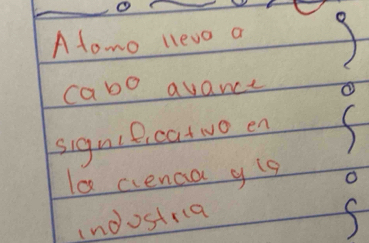 Atomo llevo a
cabo avance
significativo en
la ciencia y la
industria